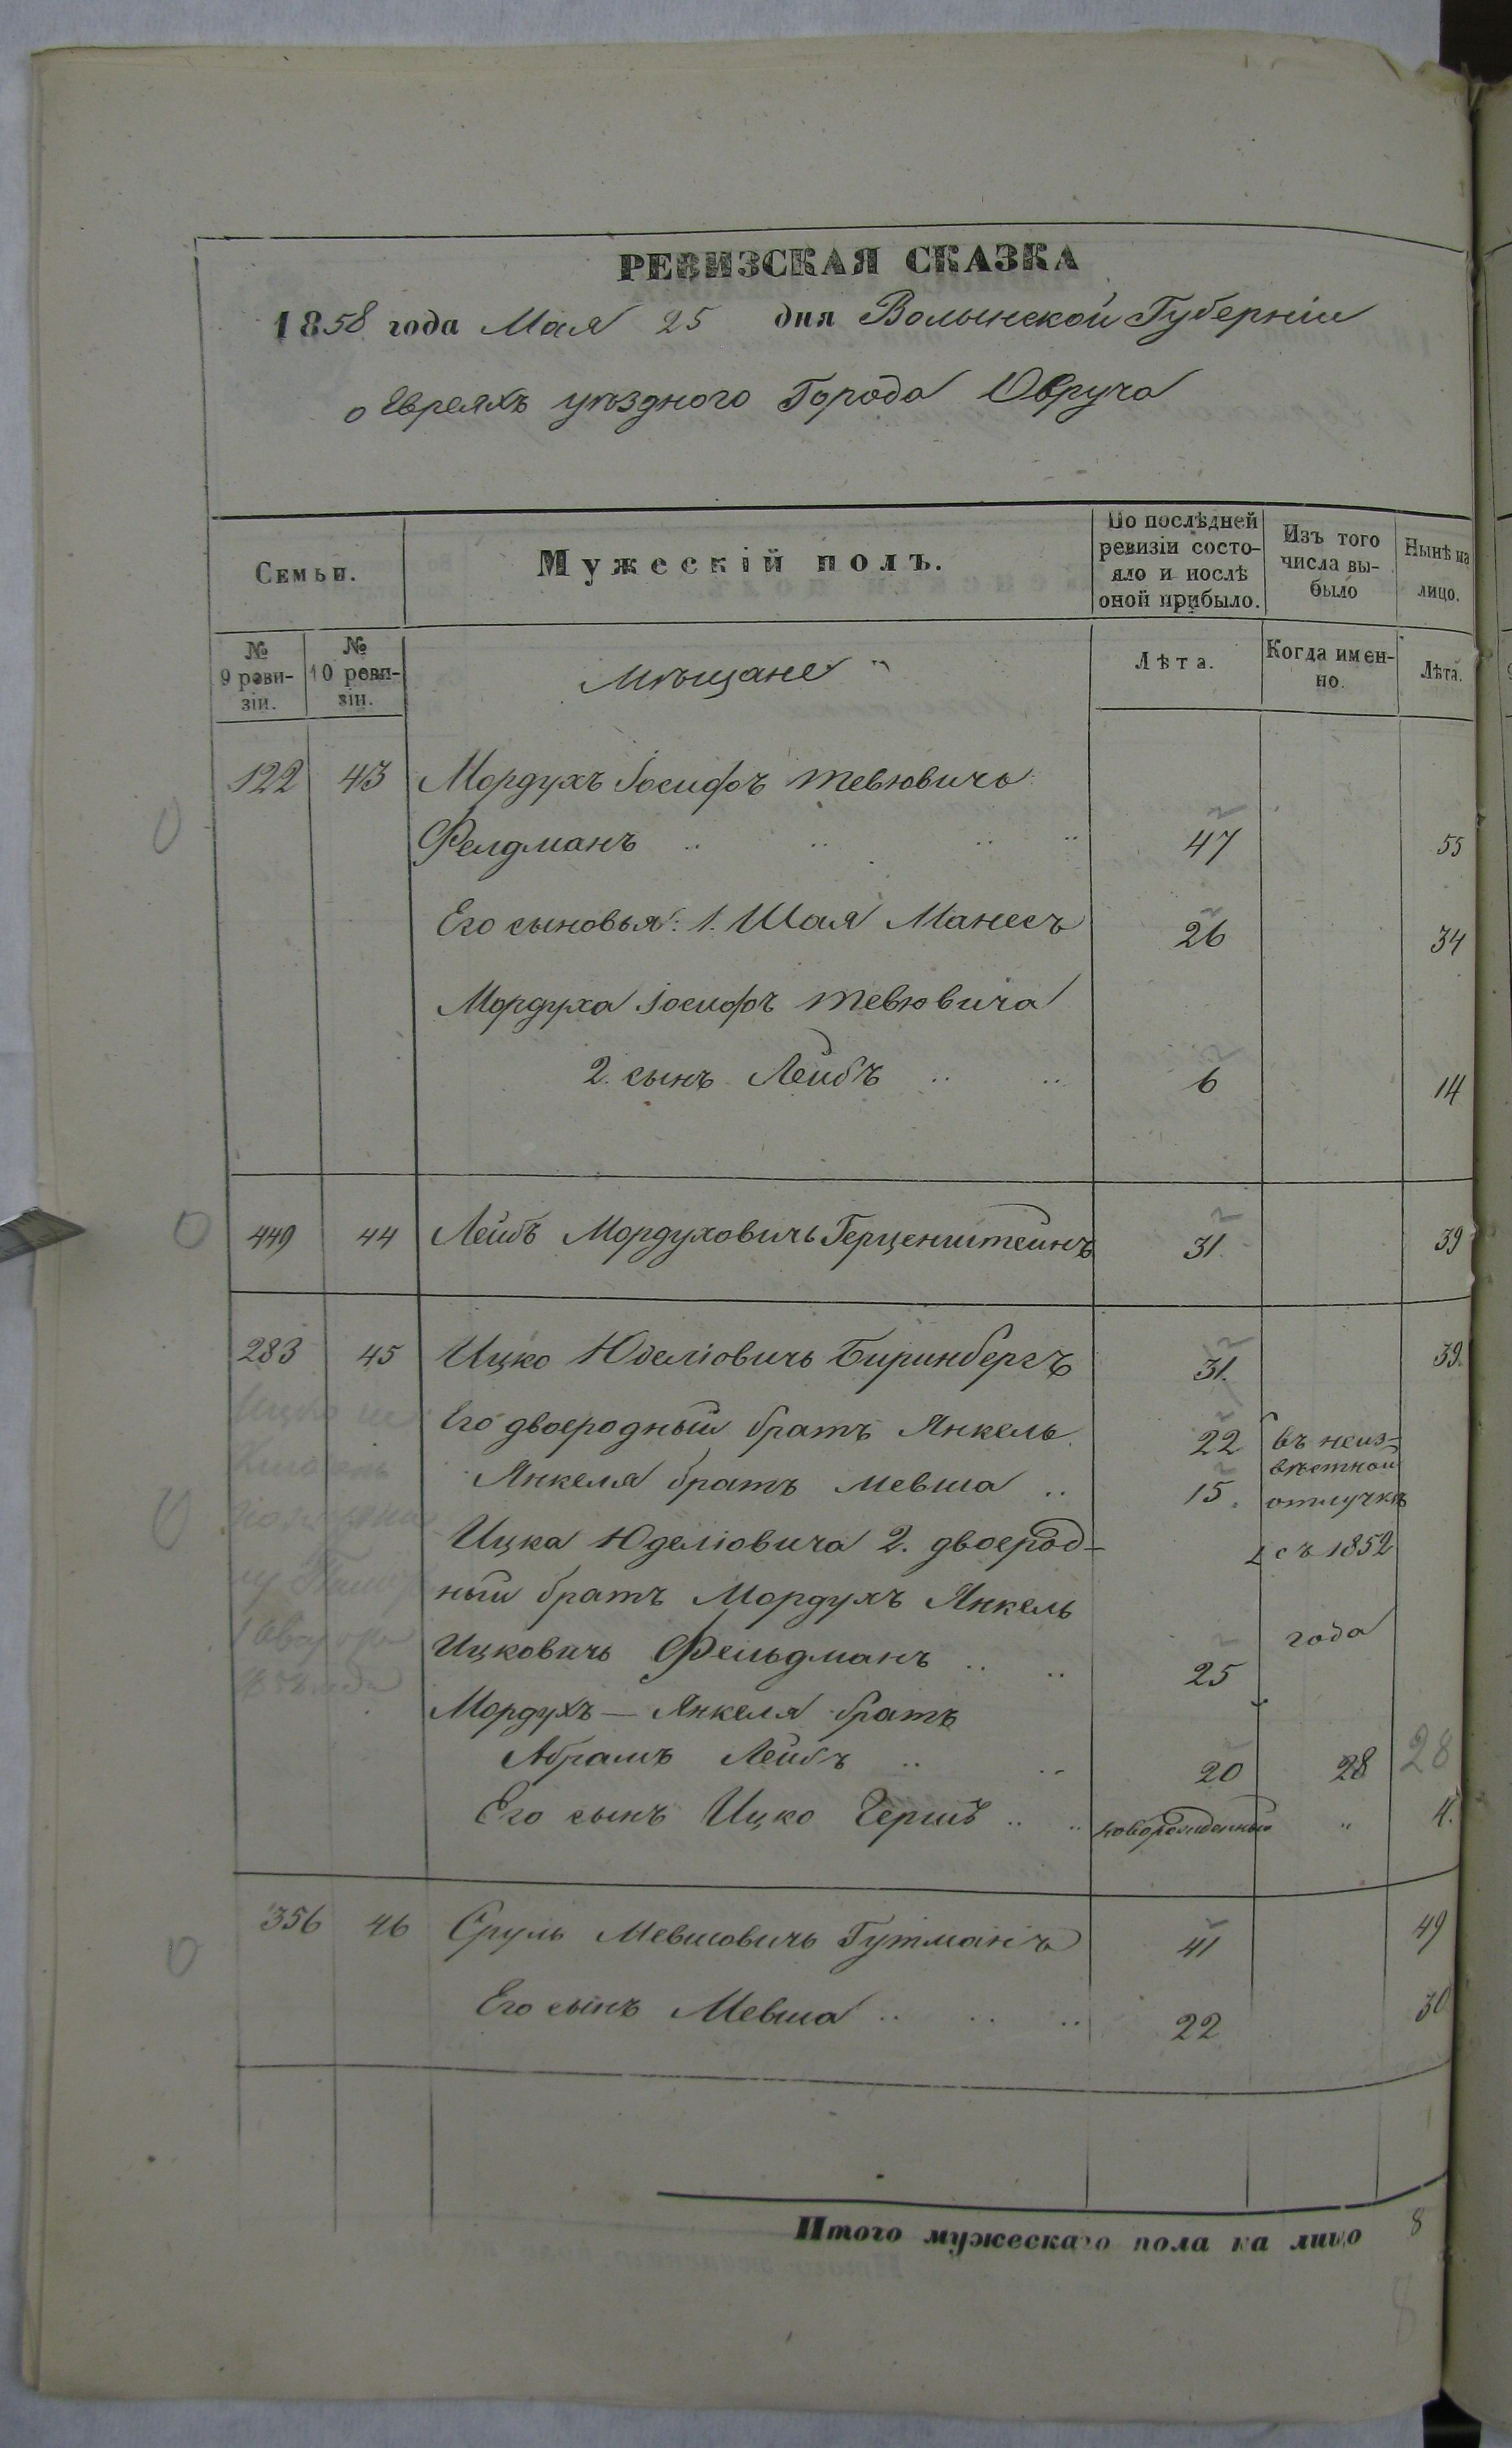 РЕВИЗСКАЯ СКАЗКА
1858 года Мая 25 дня Волынской Губерніи
о Евреяхъ уѣзднаго Города Овруча
Семьи.
Мужескій полъ.
По послѣдней ревизіи состояло и послѣ оной прибыло.
Изъ того числа выбыло
Нынѣ на лицо.
№ 9 ревизіи.
№ 10 ревизіи.
Мѣщане
Лѣта.
Когда именно.
Лѣта.
122 43 Мордухъ Іосифъ Тевювичъ
Фелдманъ .. .. .. .. 47 55
Его сыновья: 1. Шая Манесъ 26 34
Мордуха Іосифъ Тевювича
2. сынъ Лейбъ .. .. 6 14
449 44 Лейбъ Мордуховичъ Герценштейнъ 31. 39
283 45 Ицко Юделіовичъ Биринбергъ 31. 39.
Его двоеродный братъ Янкель 22 въ неиз=
вѣстной
Янкеля братъ Мевша .. 15. отлучкѣ
Ицка Юделіовича 2. двоерод- съ 1852
ный братъ Мордухъ Янкель
года
Ицковичъ Фельдманъ .. .. 25
Мордухъ — Янкеля братъ
Абрамъ Лейбъ .. .. 20 28 28
Его сынъ Ицко Гершъ .. .. новорожденный " 4.
356 46 Сруль Мевшовичъ Гутманъ 41 49
Его сынъ Мевша .. .. .. 22 30
Итого мужескаго пола на лицо 8
8